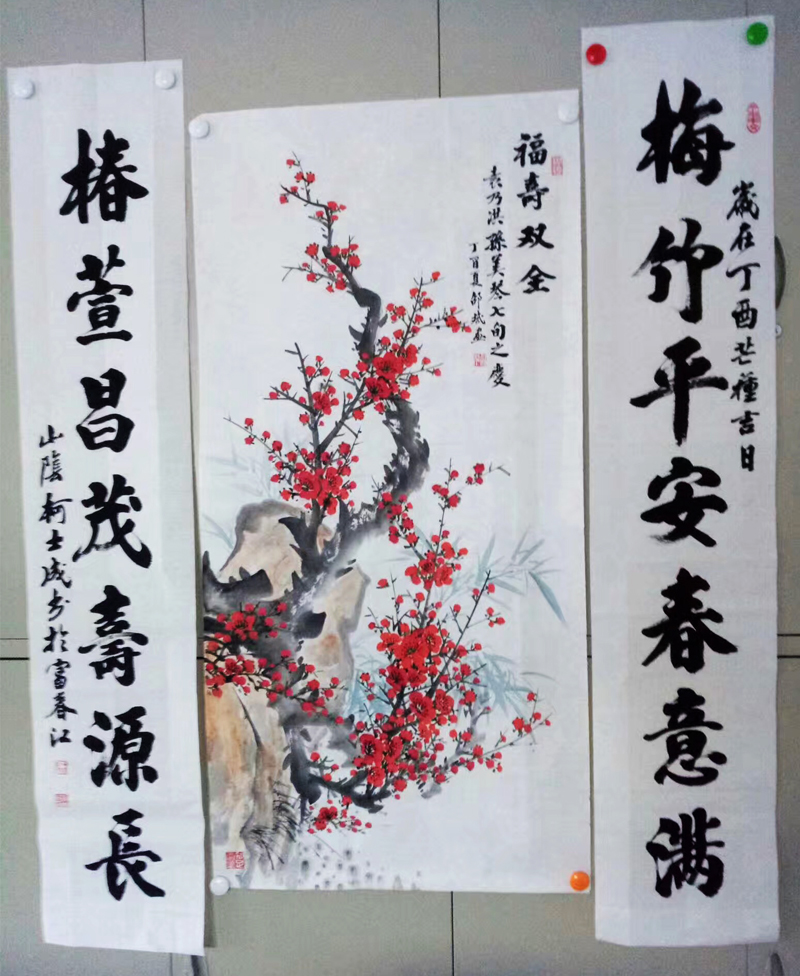 梅竹平安春意满
歲在丁酉芒種吉日
福寿双全
袁乃洪 孫美琴七旬之慶
丁酉夏邵斌画
椿萱昌茂壽源長
山陰柯士成书於富春江